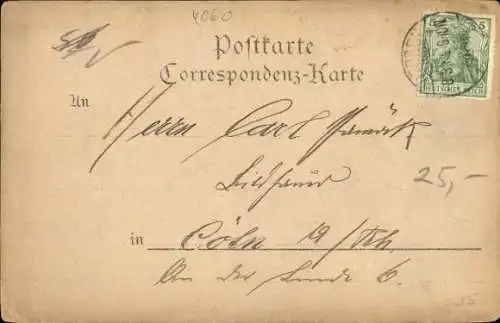 4060
Postkarte
Correspondenz-Karte
An
Herrn Carl
Bildhauer
25,-
in Cöln a/Rh.
An der Linde 6.
5 5
DEUTSCHES REICH